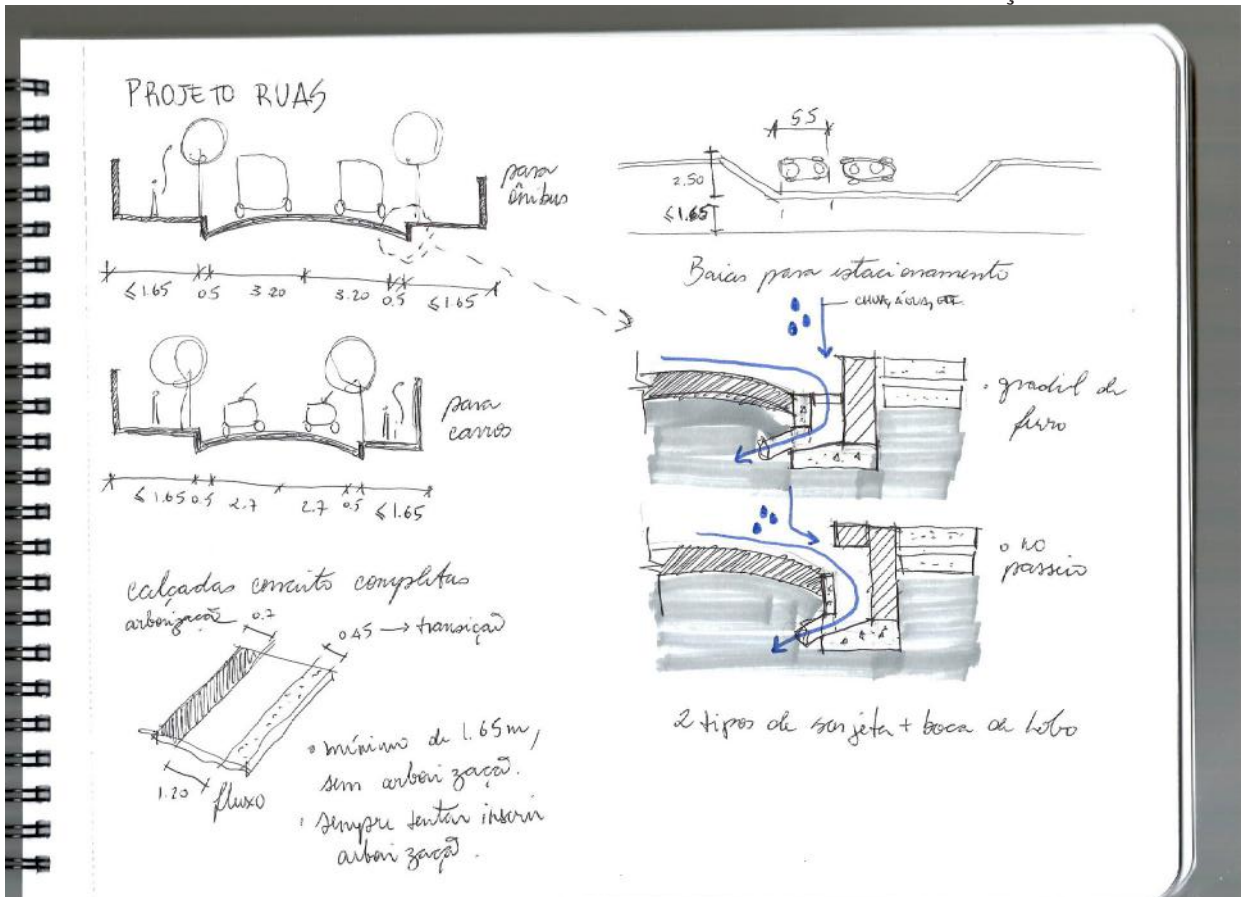 PROJETO RUAS
para
ônibus
≤1.65 0.5 3.20 3.20 0.5 ≤1.65
para
carros
≤1.65 0.5 2.7 2.7 0.5 ≤1.65
calçadas conceito completas
arborização 0.7
0.45 → transição
1.20 fluxo
• mínimo de 1.65m,
sem arborização.
• sempre tentar inserir
arborização.
5.5
2.50
≤1.65
Baias para estacionamento
CHUVA, ÁGUA, ETC.
• gradil de
ferro
• no
passeio
2 tipos de sarjeta + boca de lobo